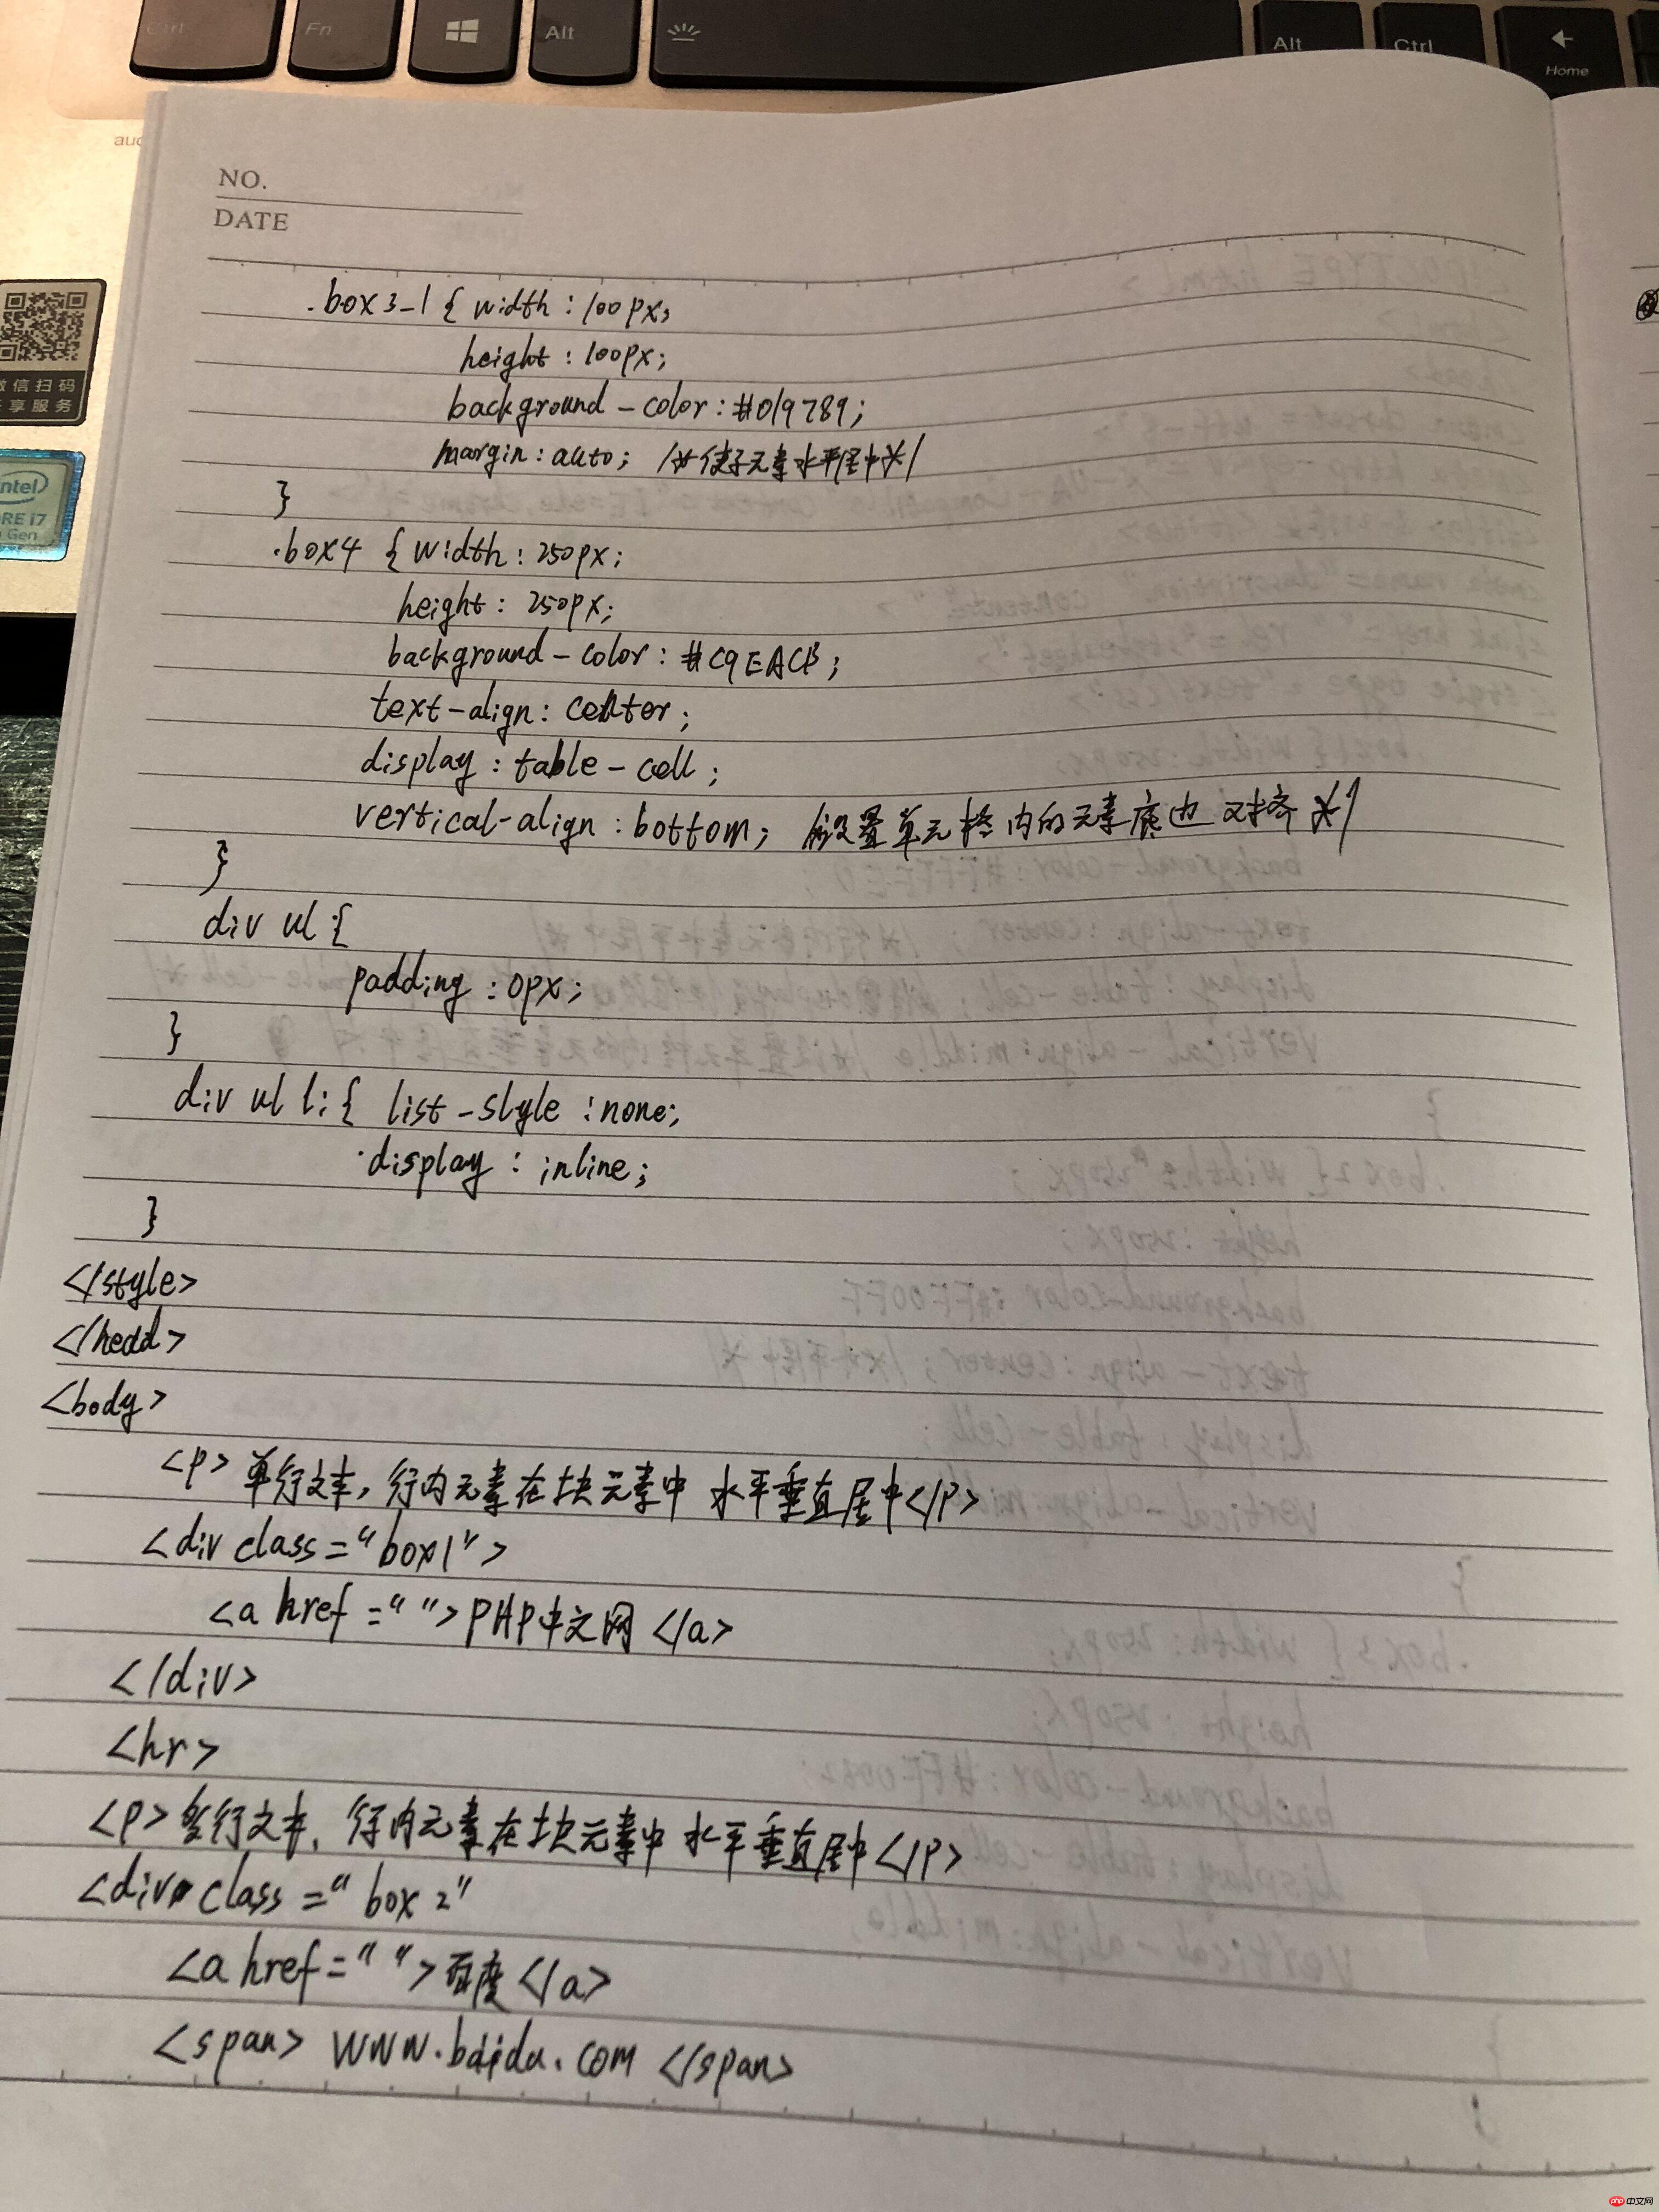 Ctrl
Fn
Alt
Alt
Ctrl
Home
NO.
DATE
.box3_1 { width : 100px;
height : 100px;
background-color : #019789;
margin : auto; /*使子元素水平居中*/
}
.box4 { width : 250px;
height : 250px;
background-color : #C9EACB;
text-align : center;
display : table-cell;
vertical-align : bottom; /*设置单元格内的元素底边对齐*/
}
div ul {
padding : 0px;
}
div ul li { list-style : none;
display : inline;
}
</style>
</head>
<body>
<p>单行文本,行内元素在块元素中 水平垂直居中</p>
<div class="box1">
<a href="">PHP中文网</a>
</div>
<hr>
<p>多行文本,行内元素在块元素中 水平垂直居中</p>
<div class="box 2"
<a href="">百度</a>
<span> www.baidu.com </span>
微信扫码
享服务
intel
CORE i7
Gen
php 中文网